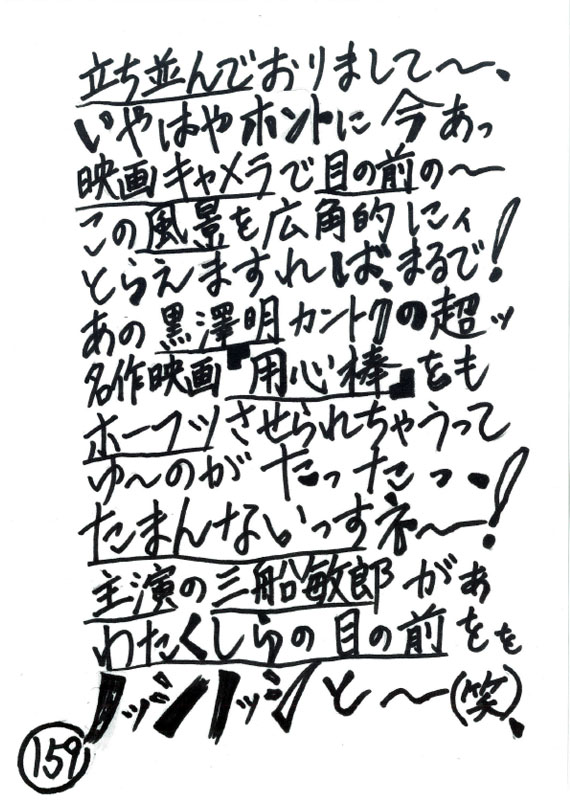 立ち並んでおりまして〜、
いやはやホントに今あっ
映画キャメラで目の前の〜
この風景を広角的にィ
とらえますれば、まるで!
あの黒澤明カントクの超ッ
名作映画『用心棒』をも
ホーフツさせられちゃうって
ゆ〜のがたったっ・!
たまんないっすネ〜!
主演の三船敏郎がぁ
わたくしらの目の前をを
ノッシノッシと〜(笑)、
159